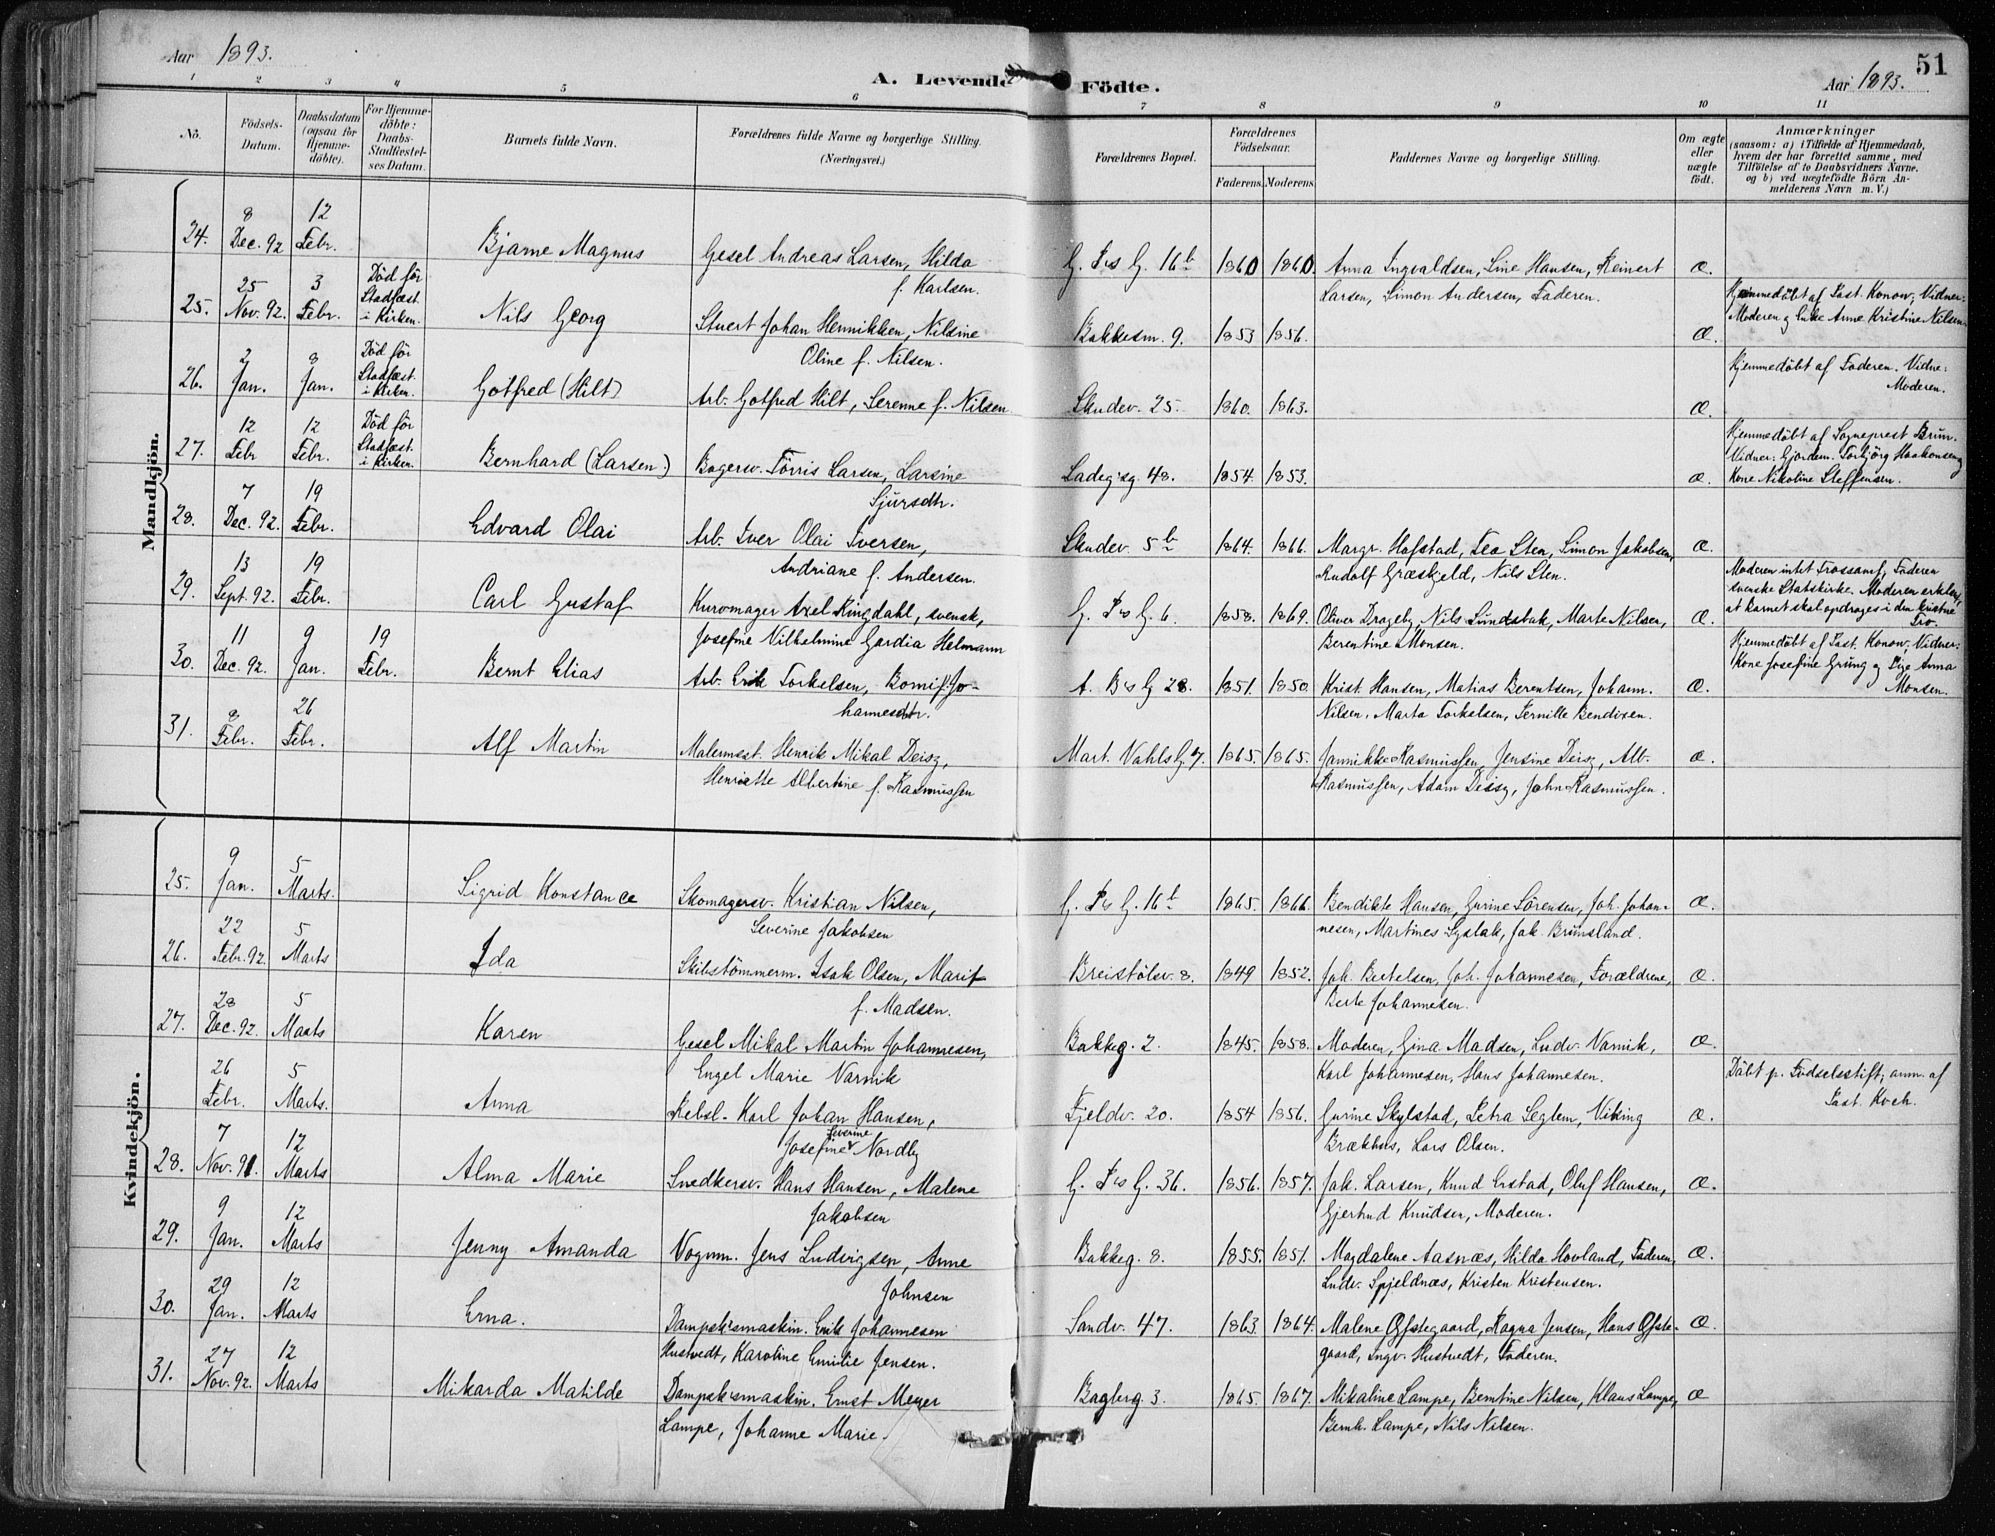 51
Aar 1893. A. Levende Födte. Aar 1893.
1 2 3 4 5 6 7 8 9 10 11
No. Födsels-Datum. Daabsdatum (ogsaa for Hjemme-döbte). For Hjemme-döbte: Daabs-Stadfæstel-ses Datum. Barnets fulde Navn. Forældrenes fulde Navne og borgerlige Stilling. (Næringsvei.) Forældrenes Bopæl. Forældrenes Födselsaar. Faderens. Moderens. Faddernes Navne og borgerlige Stilling. Om ægte eller uægte födt. Anmærkninger (saasom: a) i Tilfælde af Hjemmedaab, hvem der har forrettet samme, med Tilföielse af to Daabsvidners Navne. og b) ved uægtefödte Börn An-melderens Navn m. V.)
Mandkjön.
24. 8 Dec. 92 12 Febr. Bjarne Magnus Gesel Andreas Larsen, Hilda G. Ps G. 16b 1860 1860. Anna Ingvaldsen, Line Hansen, Reinert Æ.
f. Karlsen. Larsen, Simon Andersen, Faderen.
25. 25 Nov. 92. 3 Febr. Död för Stadfæst. i Kirken. Nils Georg Stuert Johan Hennikken, Nilsine Bakkesm. 9. 1853 1856. Æ. Hjemmedöbt af Past. Konow; Vidner: Moderen og Enke Anne Kristine Nilsen.
Oline f. Nilsen.
26. 2 Jan. 8 Jan. Död för Stadfæst. i Kirken. Gotfred (Hilt) Arb. Gotfred Hilt, Serenne f. Nilsen Skudev. 25. 1860. 1863. Æ. Hjemmedöbt af Faderen. Vidne: Moderen.
27. 12 Febr 12 Febr. Död för Stadfæst. i Kirken. Bernhard (Larsen) Bagersv. Törris Larsen, Larsine Ladegsg. 48. 1854. 1853. Æ. Hjemmedöbt af Sogneprest Brun. Vidner: Gjordem. Torbjörg Haakonsen og Kone Nikoline Steffensen.
Sjursdtr.
28. 7 Dec. 92. 19 Febr. Edvard Olai Arb. Iver Olai Iversen, Skudev. 5b 1864. 1866. Margr. Hafstad, Tea Sten, Simon Jakobsen, Æ.
Andriane f. Andersen. Rudolf Græskjeld, Nils Sten.
29. 13 Sept. 92. 19 Febr. Carl Gustaf Kurvmager Axel Ringdahl, svensk, G. Ps G. 6. 1858. 1869. Oliver Drageby, Nils Sundsbak, Marte Nilsen, Æ. Moderen intet Trossamf, Faderen svenske Statskirke. Moderen erklær., at Barnet skal opdrages i den kristne Tro.
Josefine Vilhelmine Gardia Helmann Berentine Monsen.
30. 11 Dec. 92. 9 Jan. 19 Febr. Bernt Elias Arb. Erik Torkelsen, Bomil Jo- A. Bs G 28. 1851. 1850. Krist. Hansen, Matias Berentsen, Johann. Æ. Hjemmedöbt af Past. Konow; Vidner: Kone Josefine Grung og Pige Anna Monsen.
hannesdtr. Nilsen, Marta Torkelsen, Pernille Bendixen.
31. 8 Febr. 26 Febr. Alf Martin Malermst. Henrik Mikal Deisz, Mart. Vahls G. 7. 1865. 1865. Jannikke Rasmussen, Jensine Deisz, Alb. Æ.
Henriette Albertine f. Rasmussen Rasmussen, Adam Deisz, John Rasmussen.
Kvindekjön.
25. 9 Jan. 5 Marts. Sigrid Konstance Skomagersv. Kristian Nilsen, G. Ps G. 16b 1865. 1866. Bendikte Hansen, Gurine Sörensen, Joh. Johan- Æ.
Severine Jakobsen nesen, Martines Systak, Jak. Brunsland.
26. 22 Febr. 92. 5 Marts Ida Skibstömmerm. Isak Olsen, Marit Breistölsv. 8. 1849 1852. Joh. Bertelsen, Joh. Johannesen, Forældrene, Æ.
f. Madsen. Berte Johannesen.
27. 28 Dec. 92. 5 Marts Karen Gesel Mikal Martin Johannesen, Bakkeg. 2. 1845. 1858. Moderen, Gina Madsen, Ludv. Varnik, Æ.
Engel Marie Varnik Karl Johannesen, Hans Johannesen.
26 Febr. 5 Marts. Anna Rebsl. Karl Johan Hansen, Fjeldv. 20. 1854 1856. Gurine Skylstad, Petra Seglem, Viking Æ. Döbt p. Födselsstift; anm. af Past. Koch.
Josefine Severine Nordby Brækhus, Lars Olsen.
28. 7 Nov. 91. 12 Marts Alma Marie Snedkersv. Hans Hansen, Malene G. Ps G. 36. 1856. 1857. Jak. Larsen, Knud Erstad, Oluf Hansen, Æ.
Jakobsen Gjertrud Knudsen, Moderen.
29. 9 Jan. 12 Marts Jenny Amanda Vognm. Jens Ludvigsen, Anne Bakkeg. 8. 1855. 1851. Magdalene Aasnæs, Hilda Hovland, Faderen, Æ.
Johnsen Ludv. Spjeldnæs, Kristen Kristensen.
30. 29 Jan. 12 Marts Erna. Dampsksmaskin. Erik Johannesen Sandv. 47. 1863. 1864. Malene Ofstegaard, Ragna Jensen, Hans Ofste- Æ.
Hustvedt, Karoline Emilie Jensen. gaard, Ingv. Hustvedt, Faderen.
31. 27 Nov. 92. 12 Marts Mikarda Matilde Dampsksmaskin. Ernst Meyer Bagberg. 3. 1865. 1867. Mikaline Lampe, Berntine Nilsen, Klaus Lampe, Æ
Lampe, Johanne Marie. Bernh. Lampe, Nils Nilsen.